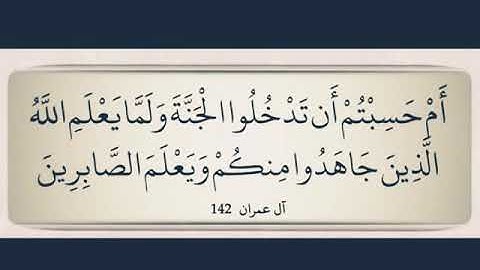 أَمْ حَسِبْتُمْ أَن تَدْخُلُوا الْجَنَّةَ وَلَمَّا يَعْلَمِ اللَّهُ
الَّذِينَ جَاهَدُوا مِنكُمْ وَيَعْلَمَ الصَّابِرِينَ
آل عمران 142